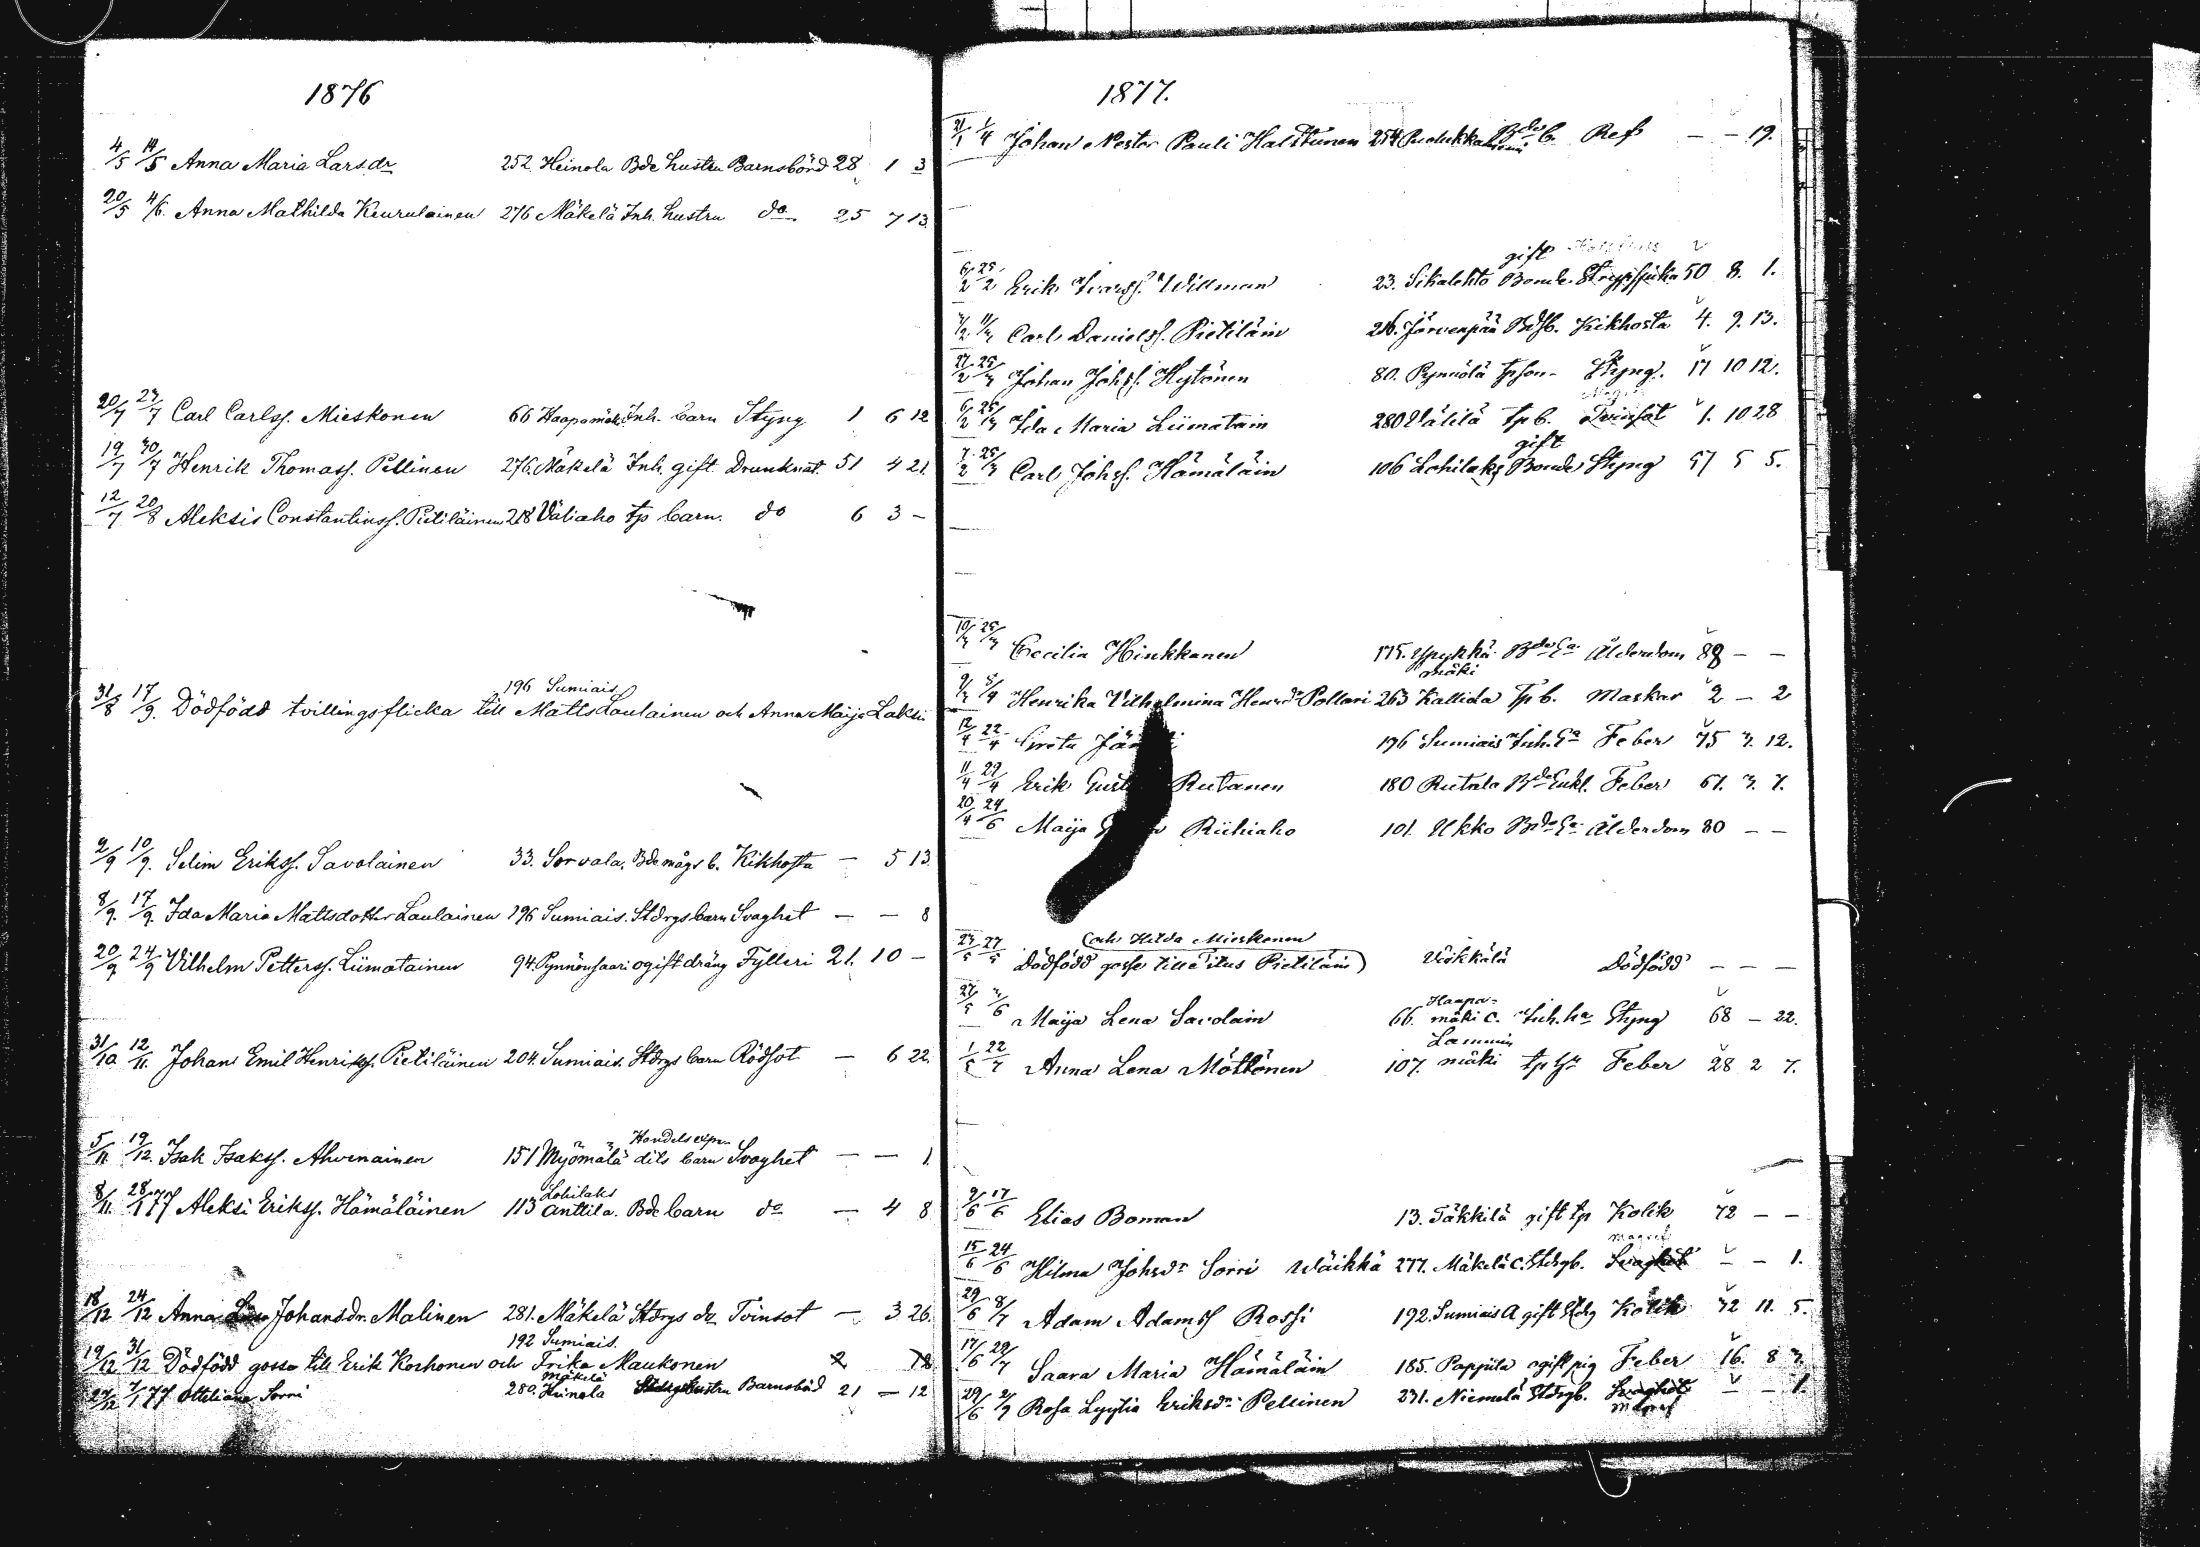 1876
4/5 14/5 Anna Maria Larsdr 252 Heinola Bde hustru Barnsbörd 28 1 3
20/5 4/6. Anna Mathilda Keurulainen 276 Mäkelä Inh. hustru do 25 7 13.
20/7 23/7 Carl Carlss. Mieskonen 66 Haapamäki Inh. barn Styng 1 6 12
19/7 30/7 Henrik Thomass. Pellinen 276. Mäkelä Inh. gift. Drunknat. 51 4 21.
12/7 20/8 Aleksis Constantinss. Pietiläinen 218 Väliaho tp barn. do 6 3 –
196 Sumiais
31/8 17/9. Dödfödd tvillingsflicka till Matts Laulainen och Anna Maija Laksi
2/9 10/9. Selim Erikss. Savolainen 33. Sorvala. Bde mågs b. Kikhosta – 5 13.
8/9. 17/9. Ida Maria Mattsdotter Laulainen 196 Sumiais. Stdrgs barn Svaghet – – 8
20/9 24/9 Vilhelm Petterss. Liimatainen 94. Pynnönsaari ogift dräng Fylleri 21. 10 –
31/10 12/11. Johan Emil Henrikss. Pietiläinen 204. Sumiais. Stdrgs barn Rödsot – 6 22.
Handelsexpe-
5/11 19/12. Isak Isakss. Ahvenainen 151 Myömälä dits barn Svaghet – – 1.
Lohilaks
8/11. 28/1 77 Aleksi Erikss. Hämäläinen 113 Anttila. Bde barn do – 4 8
18/12 24/12 Anna Johansdr. Malinen 281. Mäkelä Stdrgs dr Tvinsot – 3 26.
192 Sumiais.
19/12 31/12 Dödfödd gosse till Erik Korhonen och Frika Maukonen
Mäkelä
27/12 7/1 77 Ottiliana Sorri 280. Heinola Stdrgs hustru Barnsbörd 21 – 12
1877.
21/1 1/4 Johan Nestor Pauli Halttunen 254 Bdes b. Ref – – 19.
gift
6/2 25/2 Erik Ivarss. Willman 23. Sikalehto Bonde Strypsjuka 50 8. 1.
Carl Danielss. Pietiläin 216. Järvenpää Bdsb. Kikhosta 4. 9. 13.
Johan Johss. Hytönen 80. Pynnölä tpson Styng. 17 10 12.
Ida Maria Liimatain 280 Wälilä tp b. Tvinsot 1. 10 28
gift
Carl Johss. Hämäläin 106 Lohilaks Bonde Styng 57 5 5.
Cecilia Hinkkanen 175. Ypykkä Bdes Ea. Ålderdom 88 – –
mäki
Henrika Vilhelmina Henrdr Pollari 263 Kallida Tp b. Maskar 2 – 2
12/4 22/4 Greta 196 Sumiais Inh. Ea Feber 75 3. 12.
11/4 29/4 Erik Rutanen 180 Rutala Bde Enkl. Feber 61. 3. 7.
Maija Riihiaho 101. Ukko Bde Ea. Ålderdom 80 – –
(och Hilda Mieskonen
27/5 Dödfödd gosse till Titus Pietiläin) Wökkälä Dödfödd – – –
Haapa-
Maija Lena Savolain 66. mäki C. Inh. ha Styng 68 – 22.
Lammin
Anna Lena Möttönen 107. mäki tp Feber 28 2 7.
9/6 17/6 Elias Boman 13. Täkkilä gift tp Kolik 72 – –
15/6 24/6 Hilma Johsdr Sorri Wäikkä 277. Mäkelä C. Stdrgb. Svaghet – – 1.
29/6 8/7 Adam Adamss Rossi 192. Sumiais A gift Stdrg Kolik 72 11. 5.
17/6 29/7 Saara Maria Hämäläin 185. Pappila ogift pig Feber 16. 8 3.
29/6 2/9 Rosa Lyytia Eriksdr. Pellinen 231. Niemelä Stdrgb. Svaghet – – 1.